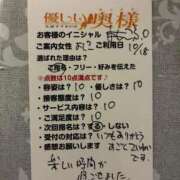 優しい奥様
お客様のイニシャル
ご案内女性 ご利用日 10/18
選ばれた理由は?
ご指名・フリー・好みを伝えた
※点数は10点満点です♪
容姿は? 10
性格は? 10
接客態度は? 10
サービスは? 10
ご満足度は? 10
次回指名は? する・しない
受付の対応は? いつもありがとう
感想お願いします
楽しい時間が
過ごせました。